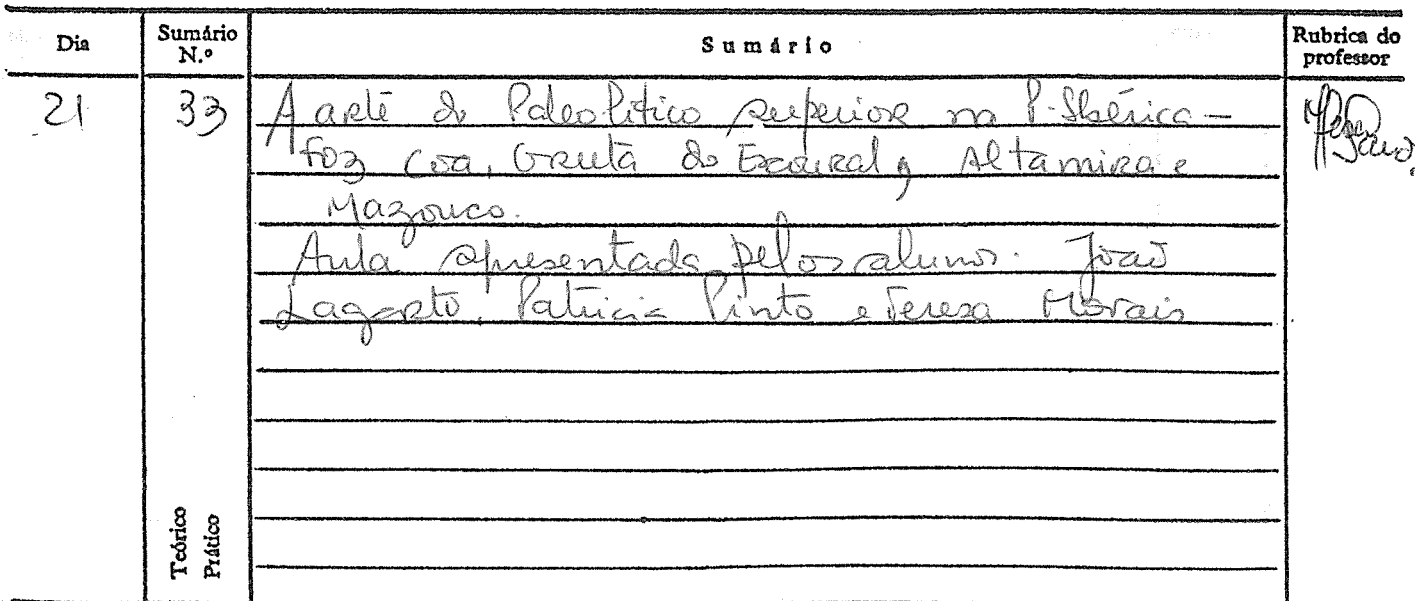 Dia Sumário N.º Sumário Rubrica do professor
21 33 A arte do Paleolítico superior na P. Ibérica –
Foz Coa, Gruta do Escoural, Altamira e
Mazouco.
Aula apresentada pelos alunos. João
Lagarto, Patrícia Pinto e Teresa Morais
Teórico
Prático